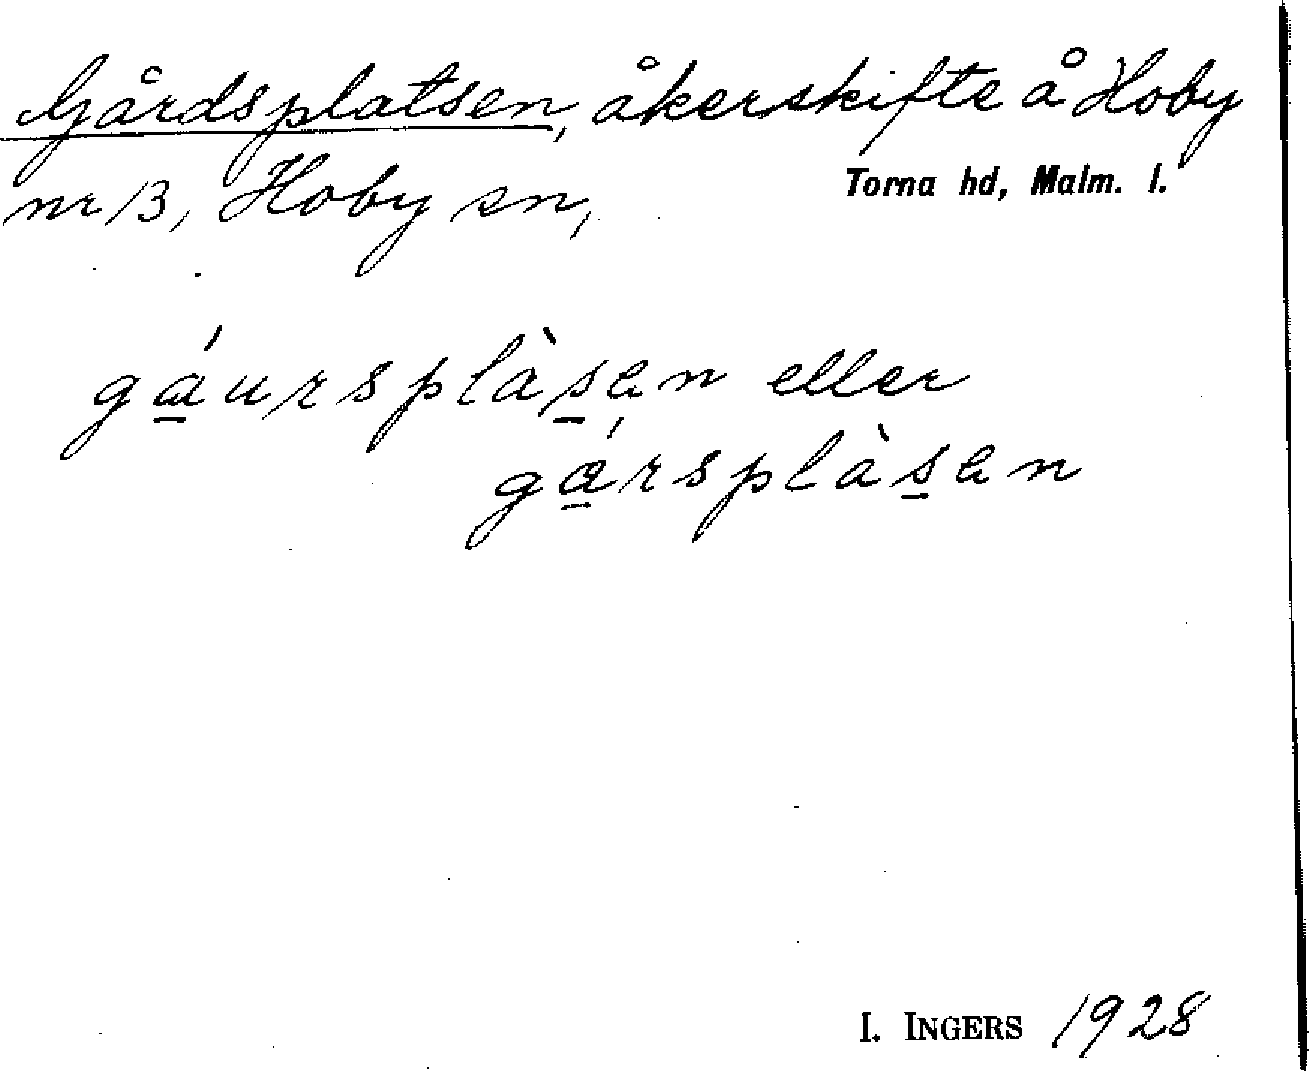 Gårdsplatsen, åkerskifte å Hoby
nr 13, Hoby sn, Torna hd, Malm. l.
gáu̱rsplàs̱an eller
gá̱rsplàs̱an
I. INGERS 1928